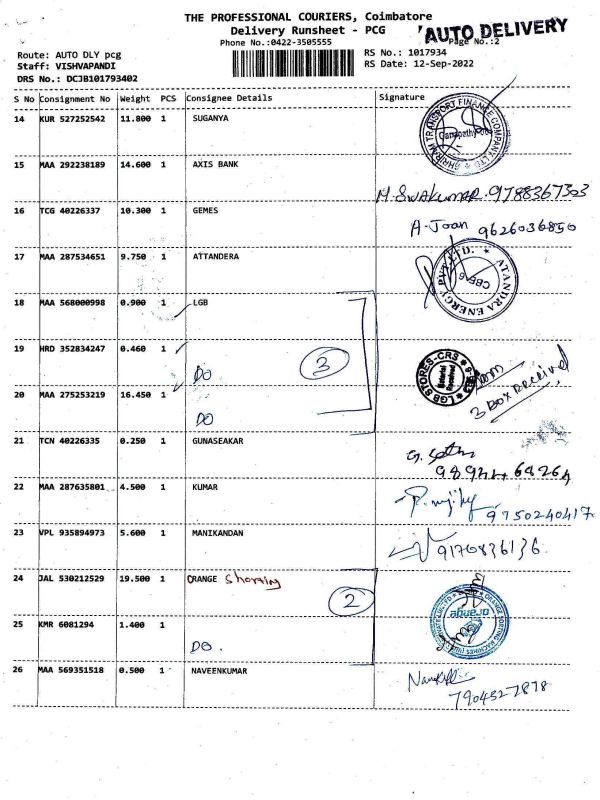 THE PROFESSIONAL COURIERS, Coimbatore
Delivery Runsheet - PCG
'AUTO DELIVERY
Phone No.:0422-3505555
Page No.:2
Route: AUTO DLY pcg
RS No.: 1017934
Staff: VISHVAPANDI
RS Date: 12-Sep-2022
DRS No.: DCJB101793402
S No Consignment No Weight PCS Consignee Details Signature
14 KUR 527252542 11.800 1 SUGANYA
15 MAA 292238189 14.600 1 AXIS BANK
9788367303
16 TCG 40226337 10.300 1 GEMES
A-Joan 9626036850
17 MAA 287534651 9.750 1 ATTANDERA
ATANDRA ENERGY PVT. LTD.
18 MAA 568000998 0.900 1 LGB
19 HRD 352834247 0.460 1
DO
3
LGB STORES-CRS
Material Received
3 Box Received
20 MAA 275253219 16.450 1
DO
21 TCN 40226335 0.250 1 GUNASEAKAR
22 MAA 287635801 4.500 1 KUMAR
9750240417
23 VPL 935894973 5.600 1 MANIKANDAN
9170836136
24 JAL 530212529 19.500 1 ORANGE
2
25 KMR 6081294 1.400 1
DO.
26 MAA 569351518 0.500 1 NAVEENKUMAR
7904527878